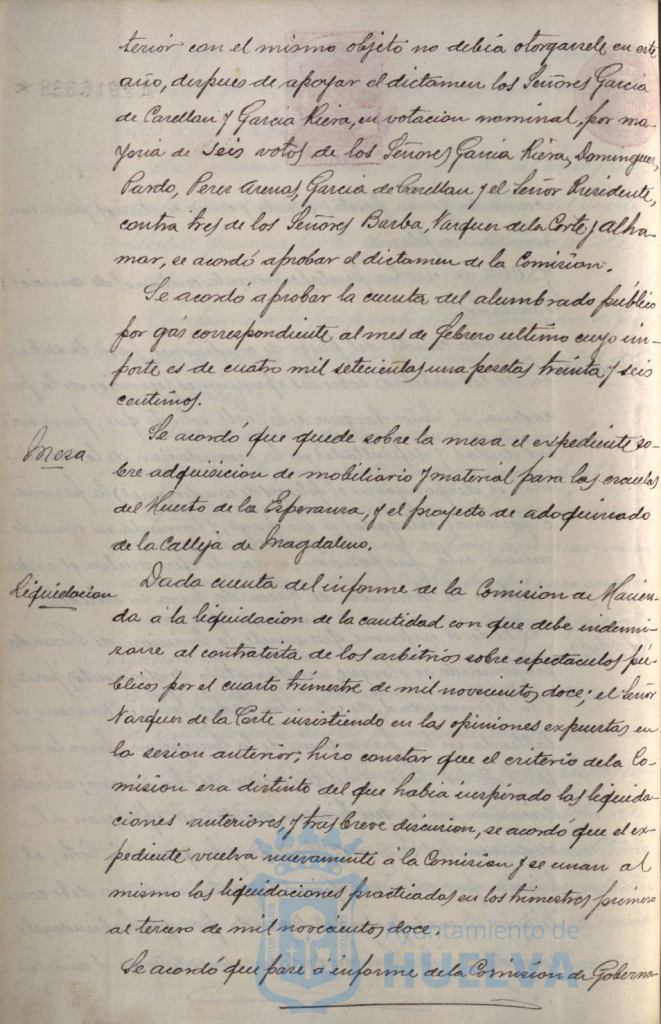 terior con el mismo objeto no debia otorgarsele en este
año, despues de apoyar el dictamen los Señores Garcia
de Carellan y Garcia Riera, en votacion nominal, por ma-
yoria de seis votos de los Señores Garcia Riera, Dominguez,
Pardo, Perez Arenas, Garcia de Carellan y el Señor Presidente,
contra tres de los Señores Barba, Vazquez de la Corte y Alha-
mar, se acordó aprobar el dictamen de la Comision.
Se acordó aprobar la cuenta del alumbrado público
por gás correspondiente al mes de febrero ultimo cuyo im-
porte es de cuatro mil setecientas una pesetas treinta y seis
centimos.
Mesa
Se acordó que quede sobre la mesa el expediente so-
bre adquisicion de mobiliario y material para las escuelas
del Huerto de la Esperanza, y el proyecto de adoquinado
de la Calleja de Magdaleno.
Liquidacion
Dada cuenta del informe de la Comision de Hacien-
da á la liquidacion de la cantidad con que debe indemni-
zarse al contratista de los arbitrios sobre espectaculos pú-
blicos por el cuarto trimestre de mil novecientos doce; el Señor
Vazquez de la Corte insistiendo en las opiniones expuestas en
la sesion anterior, hizo constar que el criterio de la Co-
mision era distinto del que habia inspirado las liquida-
ciones anteriores, y tras breve discusion, se acordó que el ex-
pediente vuelva nuevamente á la Comision y se unan al
mismo las liquidaciones practicadas en los trimestres primero
al tercero de mil novecientos doce.
Se acordó que pase á informe de la Comision de Goberna-
Ayuntamiento de
HUELVA